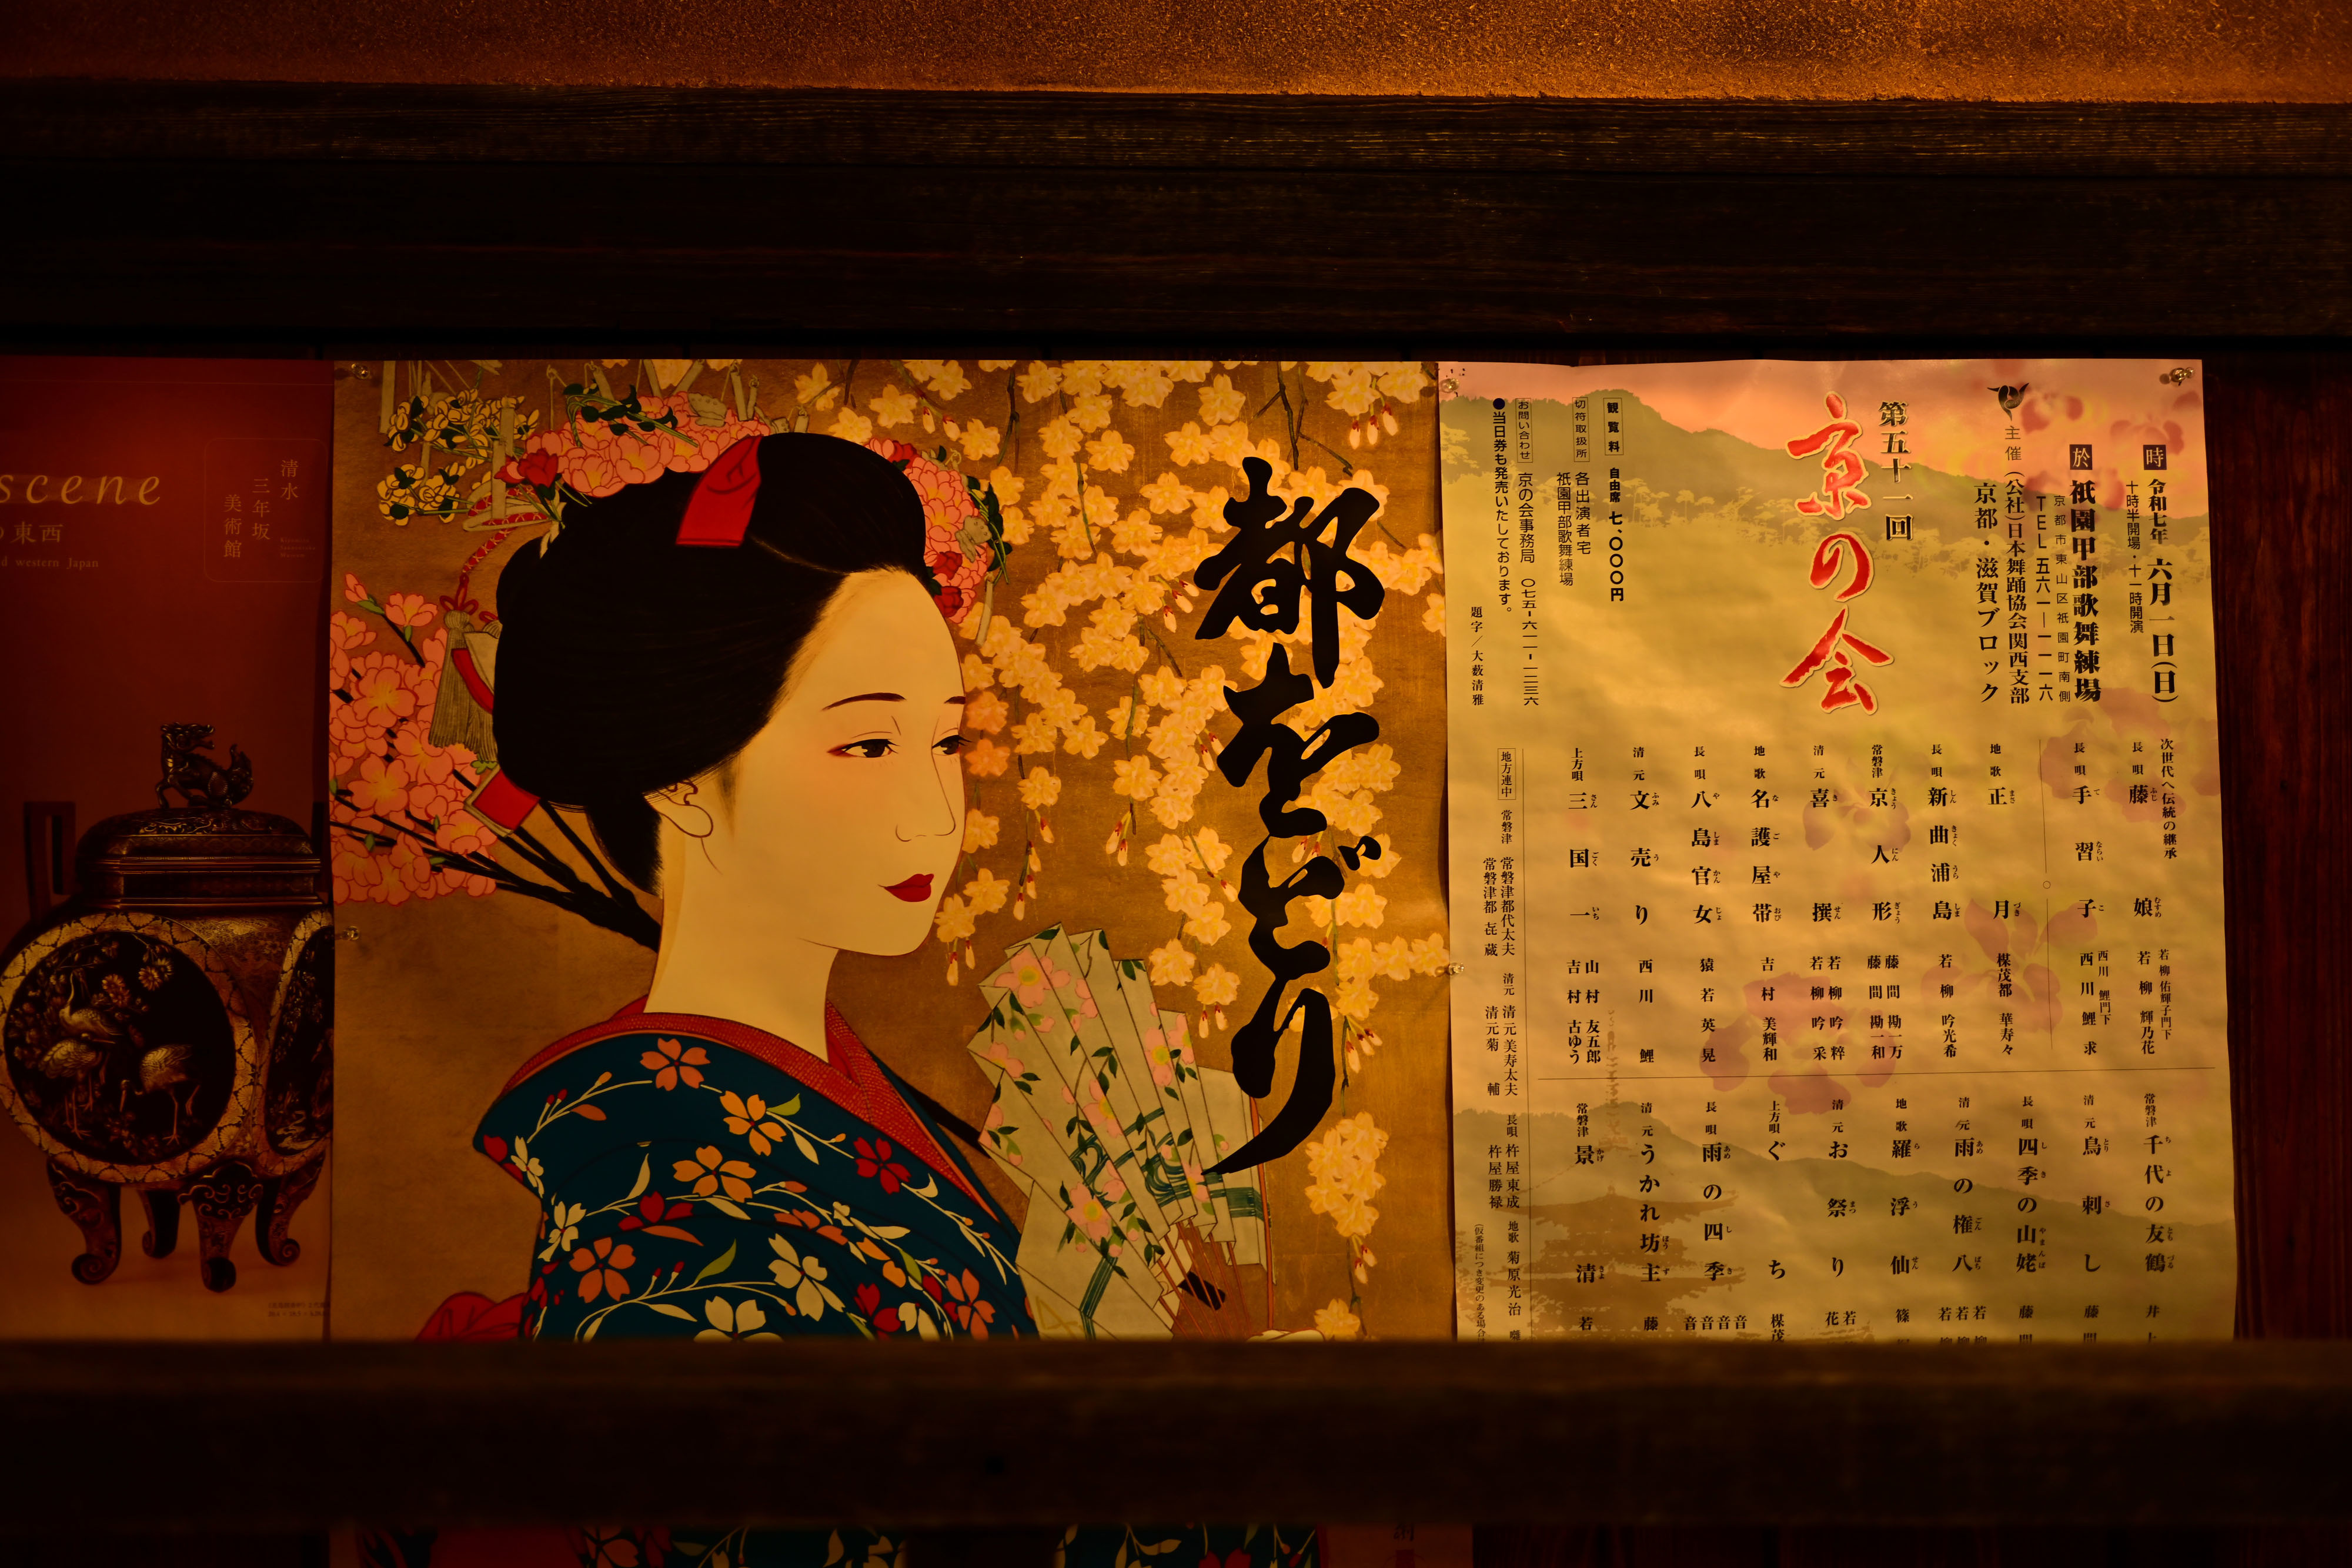 scene
の東西
d western Japan
清水
三年坂
美術館
都をどり
時 令和七年 六月一日(日)
十時半開場・十一時開演
於 祇園甲部歌舞練場
京都市東山区祇園町南側
TEL 五六一―一一一六
主催 (公社)日本舞踊協会関西支部
京都・滋賀ブロック
第五十一回
京の会
観覧料 自由席 七、〇〇〇円
切符取扱所 各出演者宅
祇園甲部歌舞練場
お問い合わせ 京の会事務局 〇七五-六一一-一二三六
●当日券も発売いたしております。
題字/大薮清雅
次世代へ伝統の継承
長唄 藤娘 若柳佑輝子門下 若柳輝乃花
長唄 手習子 西川鯉門下 西川鯉求
地歌 正月 楳茂都華寿々
長唄 新曲浦島 若柳吟光希
常磐津 京人形 藤間勘一万 藤間勘一和
清元 喜撰 若柳吟粋 若柳吟采
地歌 名護屋帯 吉村美輝和
長唄 八島官女 猿若英晃
清元 文売り 西川鯉
上方唄 三国一 山村友五郎 吉村古ゆう
常磐津 千代の友鶴 井上
清元 鳥刺し 藤間
長唄 四季の山姥 藤間
清元 雨の権八 若柳 若柳 若柳
地歌 羅浮仙 篠
清元 お祭り 若 花
上方唄 ぐち 楳茂
長唄 雨の四季 音 音 音 音
清元 うかれ坊主 藤
常磐津 景清 若
地方連中 常磐津 常磐津都代太夫 常磐津都㐂蔵
清元 清元美寿太夫 清元菊輔
長唄 杵屋東成 杵屋勝禄
地歌 菊原光治 囃
(仮番組につき変更のある場合